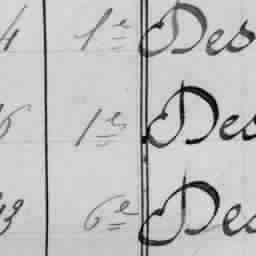 4 1e Des
6 1e Des
3 6e Des